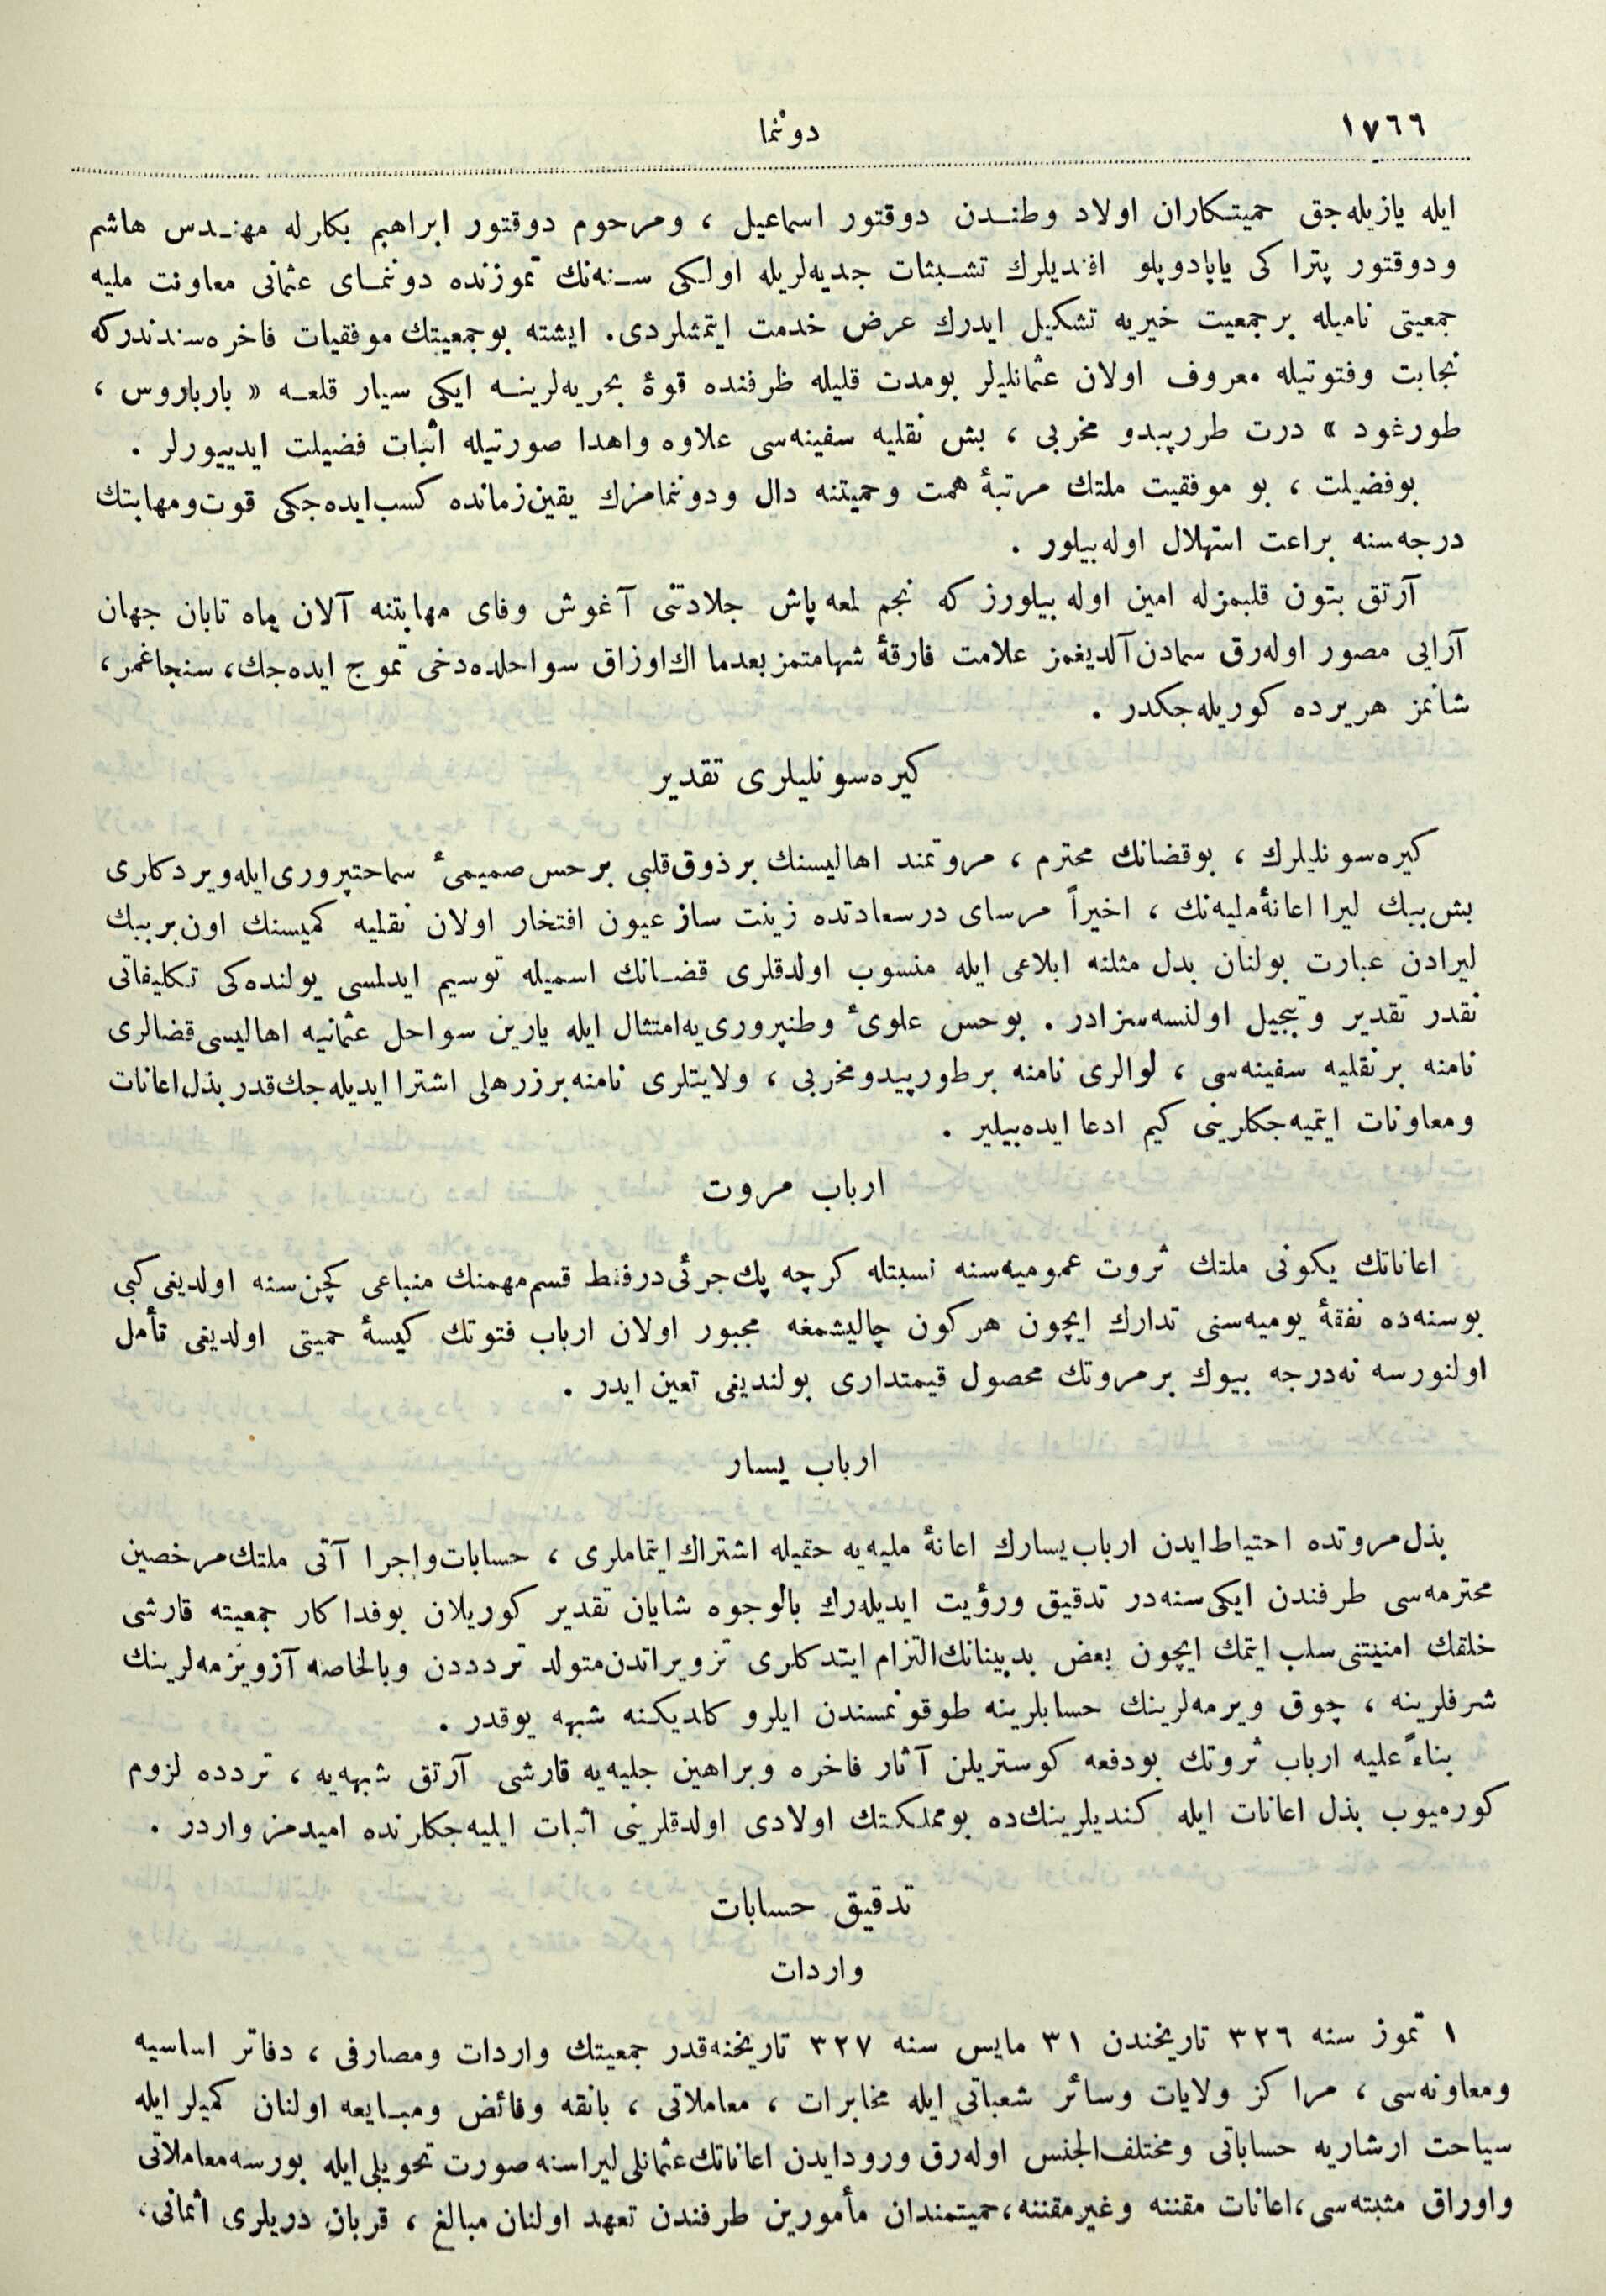 ١٧٦٦
دوننما
ايله يازيله‌جق حميتكاران اولاد وطندن دوقتور اسماعيل ، ومرحوم دوقتور ابراهيم بكارله مهندس هاشم
ودوقتور پتراكى پاپادوپلو افنديلرك تشبثات جديه‌لريله اولكى سنه‌نك تموزنده دوننماى عثمانى معاونت مليه
جمعيتى ناميله برجمعيت خيريه تشكيل ايدرك عرض خدمت ايتمشلردى. ايشته بوجمعيتك موفقيات فاخره‌سندندركه
نجابت وفتوتيله معروف اولان عثمانليلر بومدت قليله ظرفنده قوۀ بحريه‌لرينه ايكى سيار قلعه « بارباروس ،
طورغود » درت طورپيدو مخربى ، بش نقليه سفينه‌سى علاوه واهدا صورتيله اثبات فضيلت ايدييورلر .
بوفضيلت ، بو موفقيت ملتك مرتبۀ همت وحميتنه دال ودوننمامزك يقين زمانده كسب ايده‌جكى قوت ومهابتك
درجه‌سنه براعت استهلال اوله‌بيلور .
آرتق بتون قلبمزله امين اوله بيلورز كه نجم لمعه پاش جلادتنى آغوش وفاى مهابتنه آلان ماه تابان جهان
آرايى مصور اوله‌رق سمادن آلديغمز علامت فارقۀ شهامتمز بعدما اك اوزاق سواحلده دخى تموج ايده‌جك، سنجاغمز،
شانمز هريرده كوريله‌جكدر .
كيره‌سونليلرى تقدير
كيره‌سونليلرك ، بوقضانك محترم ، مروتمند اهاليسنك برذوق قلبى برحس صميمىٔ سماحتپرورى ايله ويردكلرى
بش بيك ليرا اعانۀ مليه‌نك ، اخيراً مرساى درسعادتده زينت ساز عيون افتخار اولان نقليه كميسنك اون بربيك
ليرادن عبارت بولنان بدل مثلنه ابلاغى ايله منسوب اولدقلرى قضانك اسميله توسيم ايدلمسى يولنده‌كى تكليفاتى
نقدر تقدير وتبجيل اولنسه سزادر . بوحس علوىٔ وطنپرورى‌يه امتثال ايله يارين سواحل عثمانيه اهاليسى قضالرى
نامنه برنقليه سفينه‌سى ، لوالرى نامنه برطورپيدو مخربى ، ولايتلرى نامنه برزرهلى اشترا ايديله‌جك قدر بذل اعانات
ومعاونات ايتميه‌جكلرينى كيم ادعا ايده‌بيلير .
ارباب مروت
اعاناتك يكونى ملتك ثروت عموميه‌سنه نسبتله كرچه پك جزئى‌در فقط قسم مهمنك منباعى كچن سنه اولديغى كبى
بوسنه‌ده نفقۀ يوميه‌سنى تدارك ايچون هركون چاليشمغه مجبور اولان ارباب فتوتك كيسۀ حميتى اولديغى تأمل
اولنورسه نه‌درجه بيوك برمروتك محصول قيمتدارى بولنديغى تعين ايدر .
ارباب يسار
بذل مروتده احتياط ايدن ارباب يسارك اعانۀ مليه‌يه حقيله اشتراك ايتماملرى ، حسابات واجرا آتى ملتك مرخصين
محترمه‌سى طرفندن ايكى سنه‌در تدقيق ورؤيت ايديله‌رك بالوجوه شايان تقدير كوريلان بوفداكار جمعيته قارشى
خلقك امنيتنى سلب ايتمك ايچون بعض بدبينانك التزام ايتدكلرى تزويراتدن متولد تردددن وبالخاصه آزويرمه‌لرينك
شرفلرينه ، چوق ويرمه‌لرينك حسابلرينه طوقونمسندن ايلرو كلديكنه شبهه يوقدر .
بناءً عليه ارباب ثروتك بودفعه كوستريلن آثار فاخره وبراهين جليه‌يه قارشى آرتق شبهه‌يه ، تردده لزوم
كورميوب بذل اعانات ايله كنديلرينك‌ده بومملكتك اولادى اولدقلرينى اثبات ايليه‌جكلرنده اميدمز واردر .
تدقيق حسابات
واردات
١ تموز سنه ٣٢٦ تاريخندن ٣١ مايس سنه ٣٢٧ تاريخنه‌قدر جمعيتك واردات ومصارفى ، دفاتر اساسيه
ومعاونه‌سى ، مراكز ولايات وسائر شعباتى ايله مخابرات ، معاملاتى ، بانقه وفائض ومبايعه اولنان كميلر ايله
سياحت ارشاريه حساباتى ومختلف‌الجنس اوله‌رق ورودايدن اعاناتك عثمانلى ليراسنه صورت تحويلى ايله بورسه معاملاتى
واوراق مثبته‌سى، اعانات مقننه وغيرمقننه، حميتمندان مأمورين طرفندن تعهد اولنان مبالغ ، قربان دريلرى اثمانى،